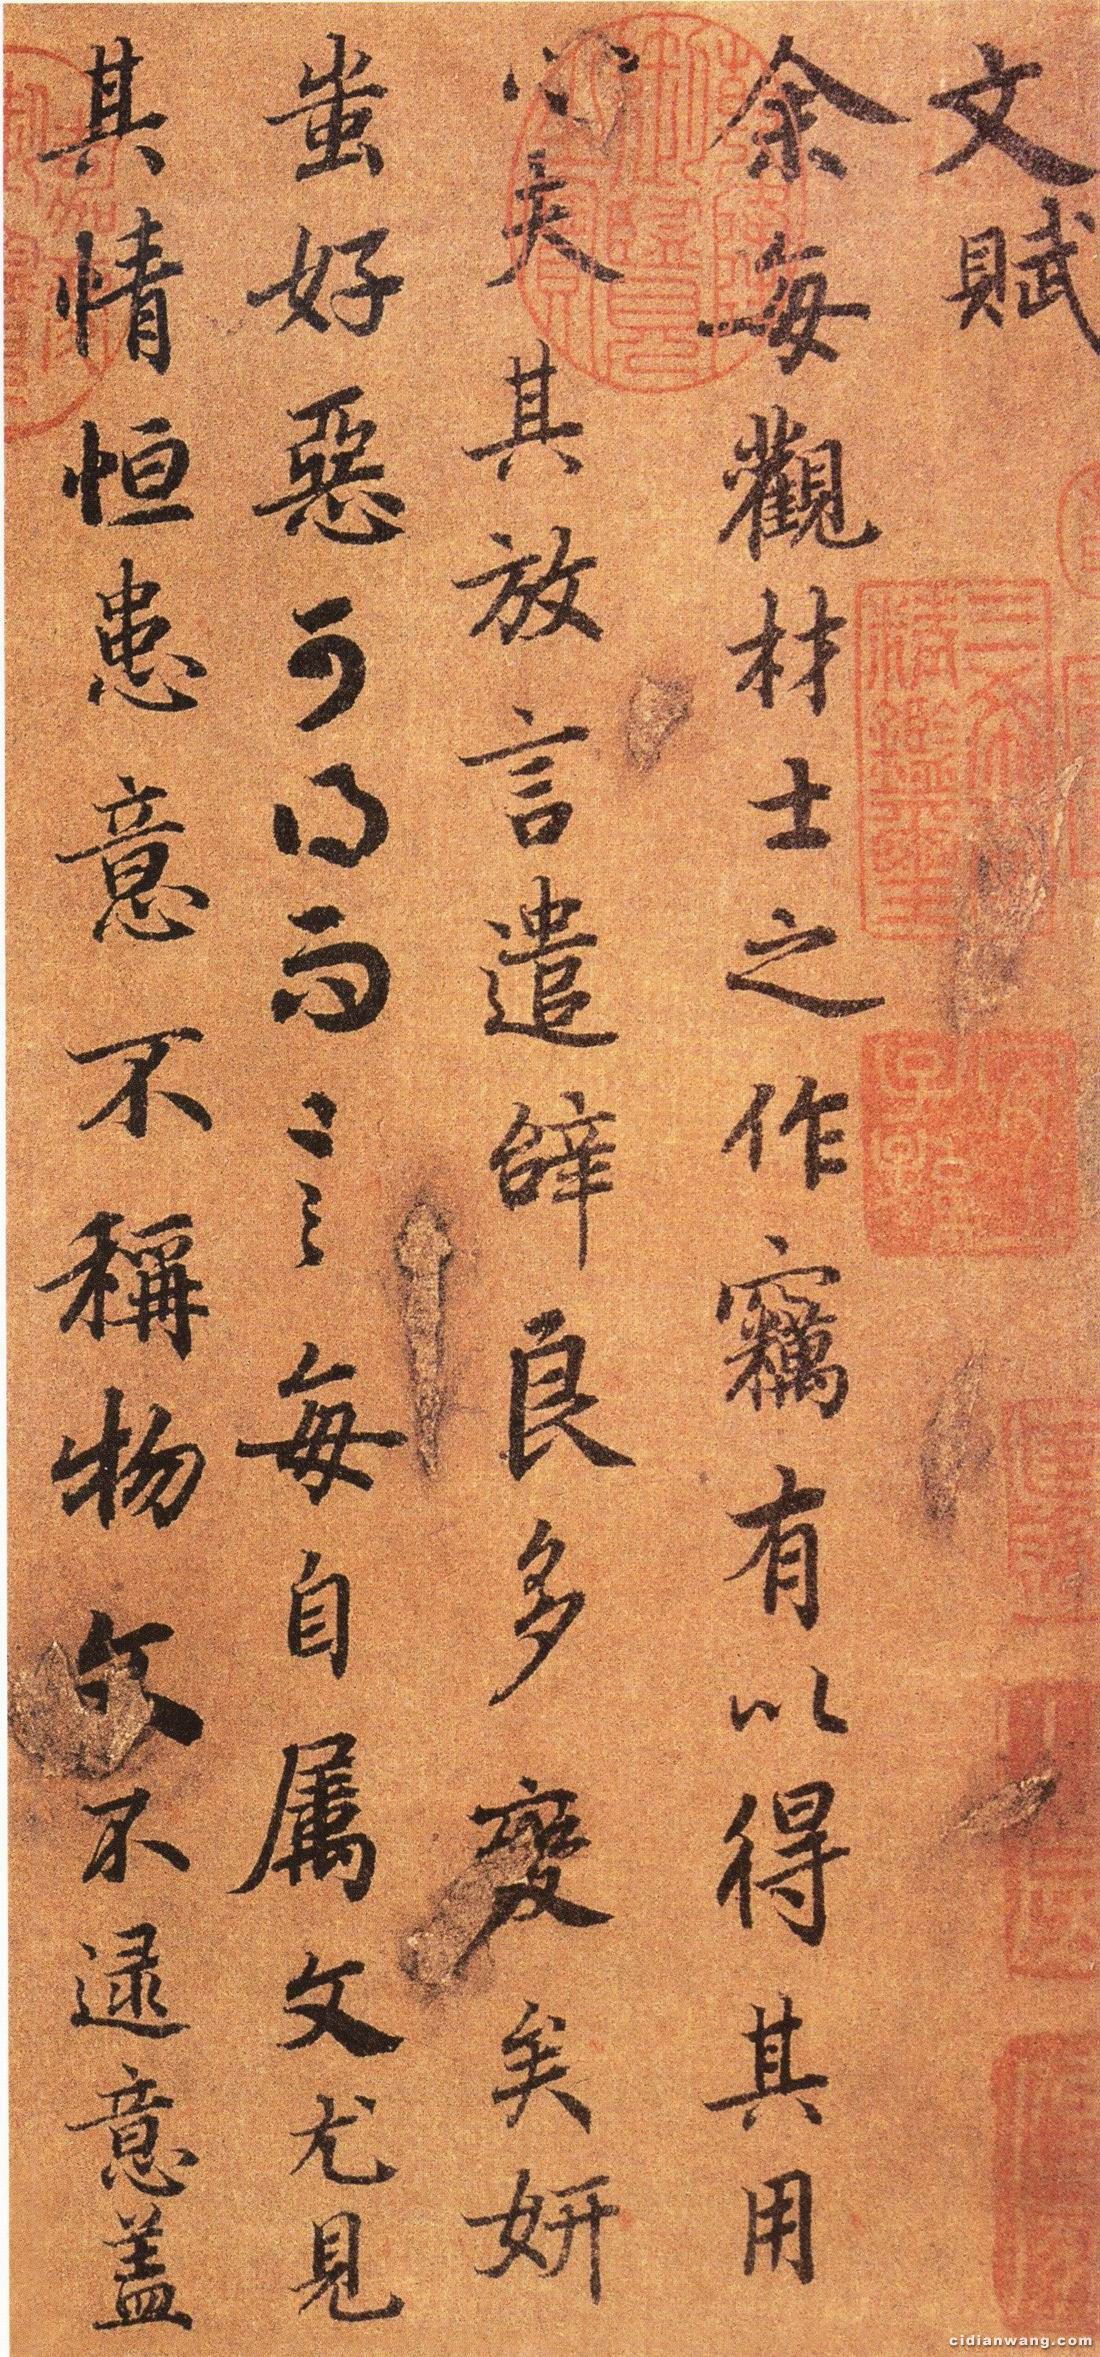 文賦
余每觀材士之作竊有以得其用
心夫其放言遣辭良多變矣妍
蚩好惡可得而言每自属文尤見
其情恒患意不稱物文不逮意盖
cidianwang.com